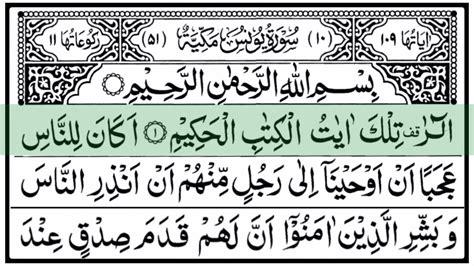 اٰیاتها ١٠٩ (١٠) سُوْرَةُ يُوْنُسَ مَكِّيَّةٌ (٥١) رکوعاتها ١١
بِسْمِ اللهِ الرَّحْمٰنِ الرَّحِيْمِ
الٓرٰ قف تِلْكَ اٰيٰتُ الْكِتٰبِ الْحَكِيْمِ ١ اَكَانَ لِلنَّاسِ
عَجَبًا اَنْ اَوْحَيْنَاۤ اِلٰى رَجُلٍ مِّنْهُمْ اَنْ اَنْذِرِ النَّاسَ
وَ بَشِّرِ الَّذِيْنَ اٰمَنُوْۤا اَنَّ لَهُمْ قَدَمَ صِدْقٍ عِنْدَ